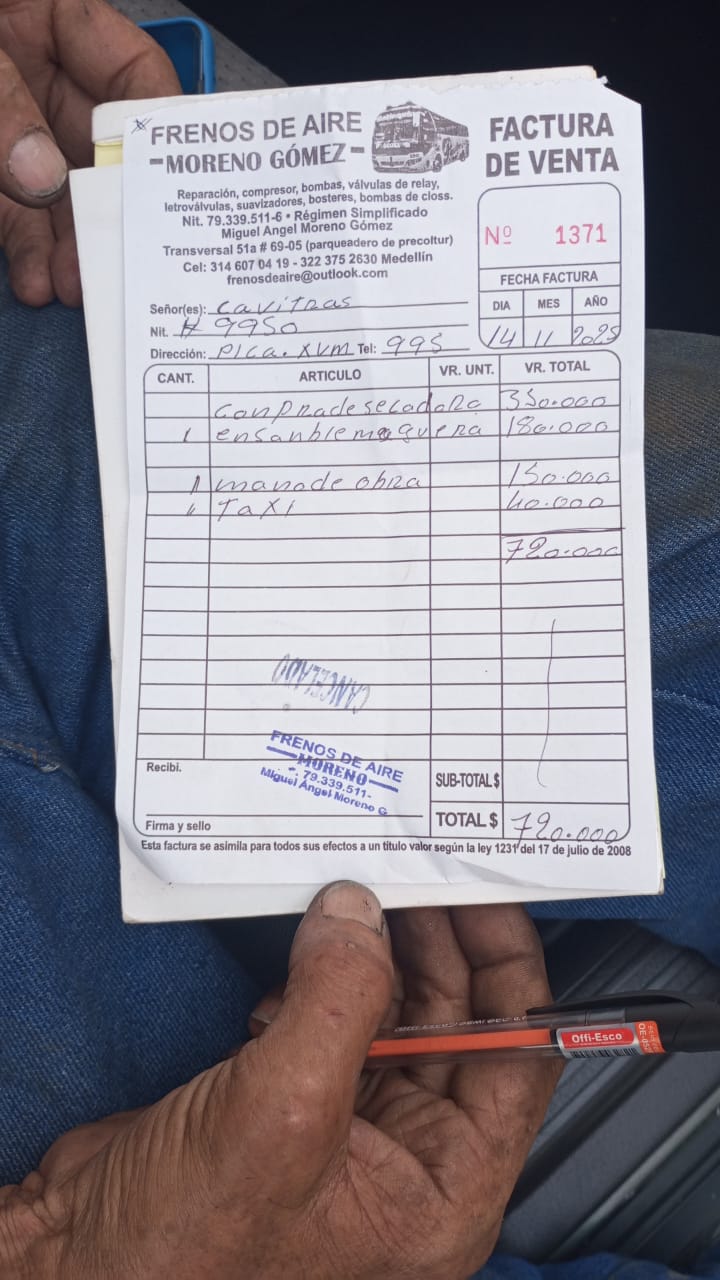 FRENOS DE AIRE
MORENO GÓMEZ
Reparación, compresor, bombas, válvulas de relay,
letroválvulas, suavizadores, bosteres, bombas de closs.
Nit. 79.339.511-6 • Régimen Simplificado
Miguel Angel Moreno Gómez
Transversal 51a # 69-05 (parqueadero de precoltur)
Cel: 314 607 04 19 - 322 375 2630 Medellín
frenosdeaire@outlook.com
FACTURA
DE VENTA
Nº 1371
FECHA FACTURA
DIA MES AÑO
14 11 2025
Señor(es): cavitras
Nit. # 9950
Dirección: Plca. XVM Tel: 995
CANT. ARTICULO VR. UNT. VR. TOTAL
conpradesecadora 350.000
1 ensanblemaguera 180.000
1 manode obra 150.000
" Taxi 40.000
720.000
CANCELADO
FRENOS DE AIRE
MORENO
79.339.511-
Miguel Angel Moreno G
Recibi.
Firma y sello
SUB-TOTAL $
TOTAL $ 720.000
Esta factura se asimila para todos sus efectos a un título valor según la ley 1231 del 17 de julio de 2008
Offi-Esco